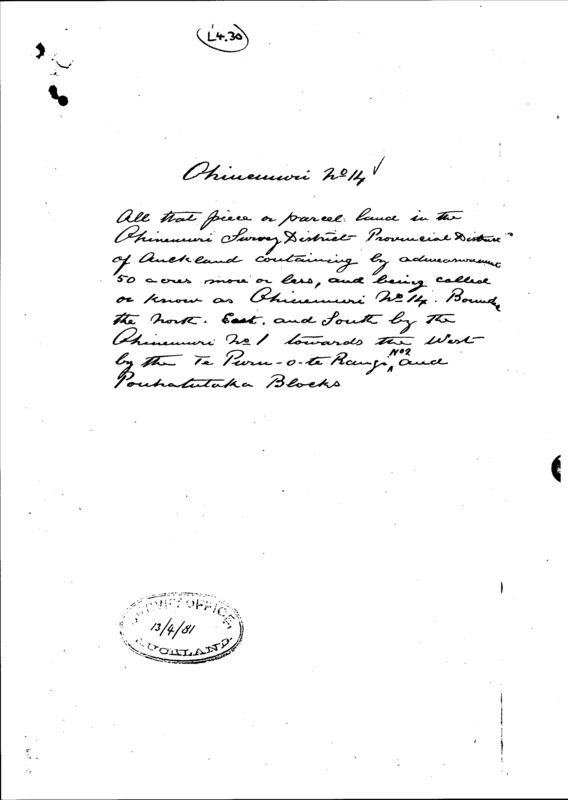 L4.30
Ohinemuri No 14
All that piece or parcel land in the
Ohinemuri Survey District Provincial District
of Auckland containing by admeasurement
50 acres more or less, and being called
or know as Ohinemuri No 14. Bounded
the North. East. and South by the
Ohinemuri No 1 towards the West
by the Te Puru-o-te Rangi No 2 and
Pouhatutaka Blocks
SURVEY OFFICE,
13/4/81
AUCKLAND.